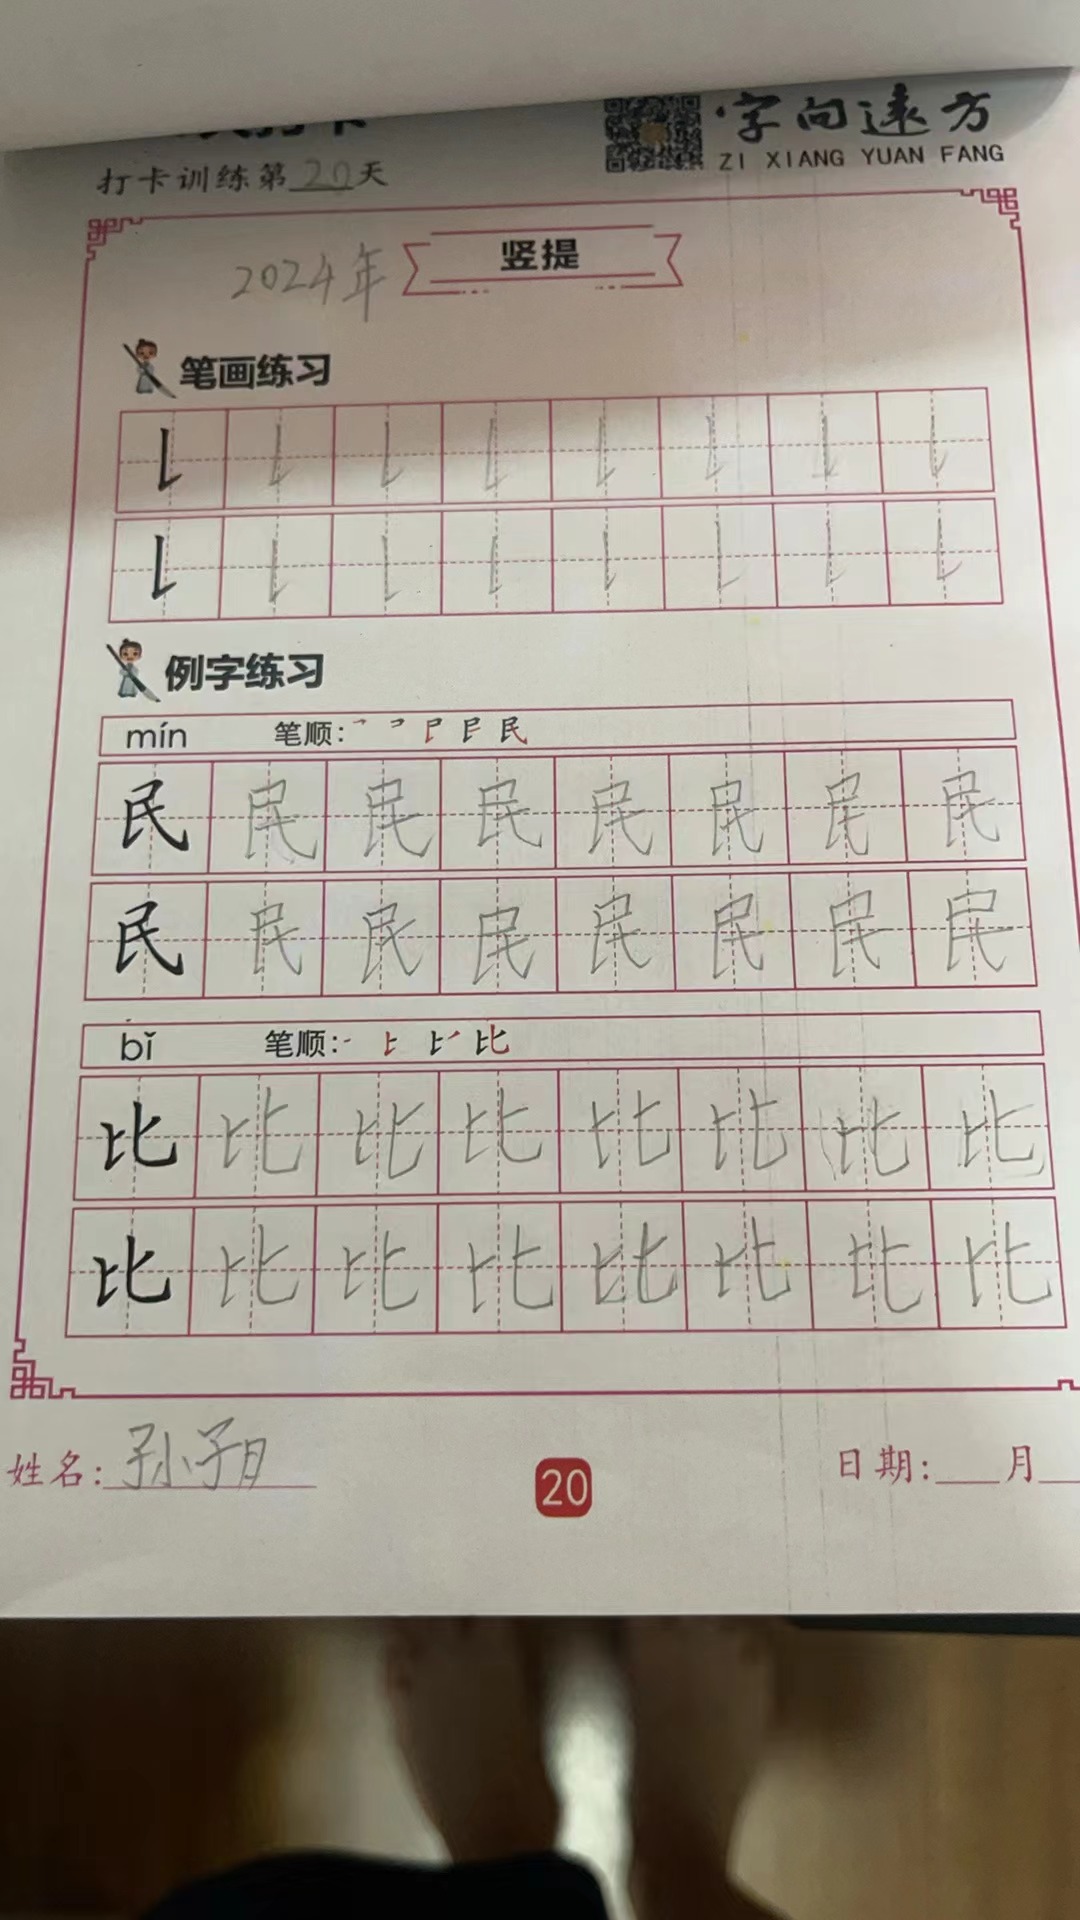 字向远方
ZI XIANG YUAN FANG
打卡训练第20天
2024年
竖提
笔画练习
例字练习
mín 笔顺: 民
民民民民民民民民
民民民民民民民民
bǐ 笔顺: 比
比比比比比比比比
比比比比比比比比
姓名: 孙子月
20
日期: 月